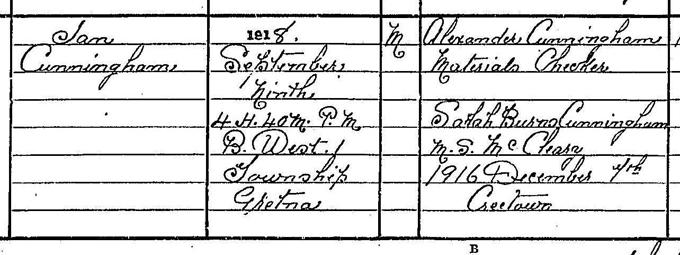 Ian
Cunningham
1918.
September
Ninth
4 H. 40 M. P. M
B. West.
Township
Gretna
M
Alexander Cunningham
Materials Checker
Sarah Burns Cunningham
M. S. McCleary
1916 December 7th
Creetown
B